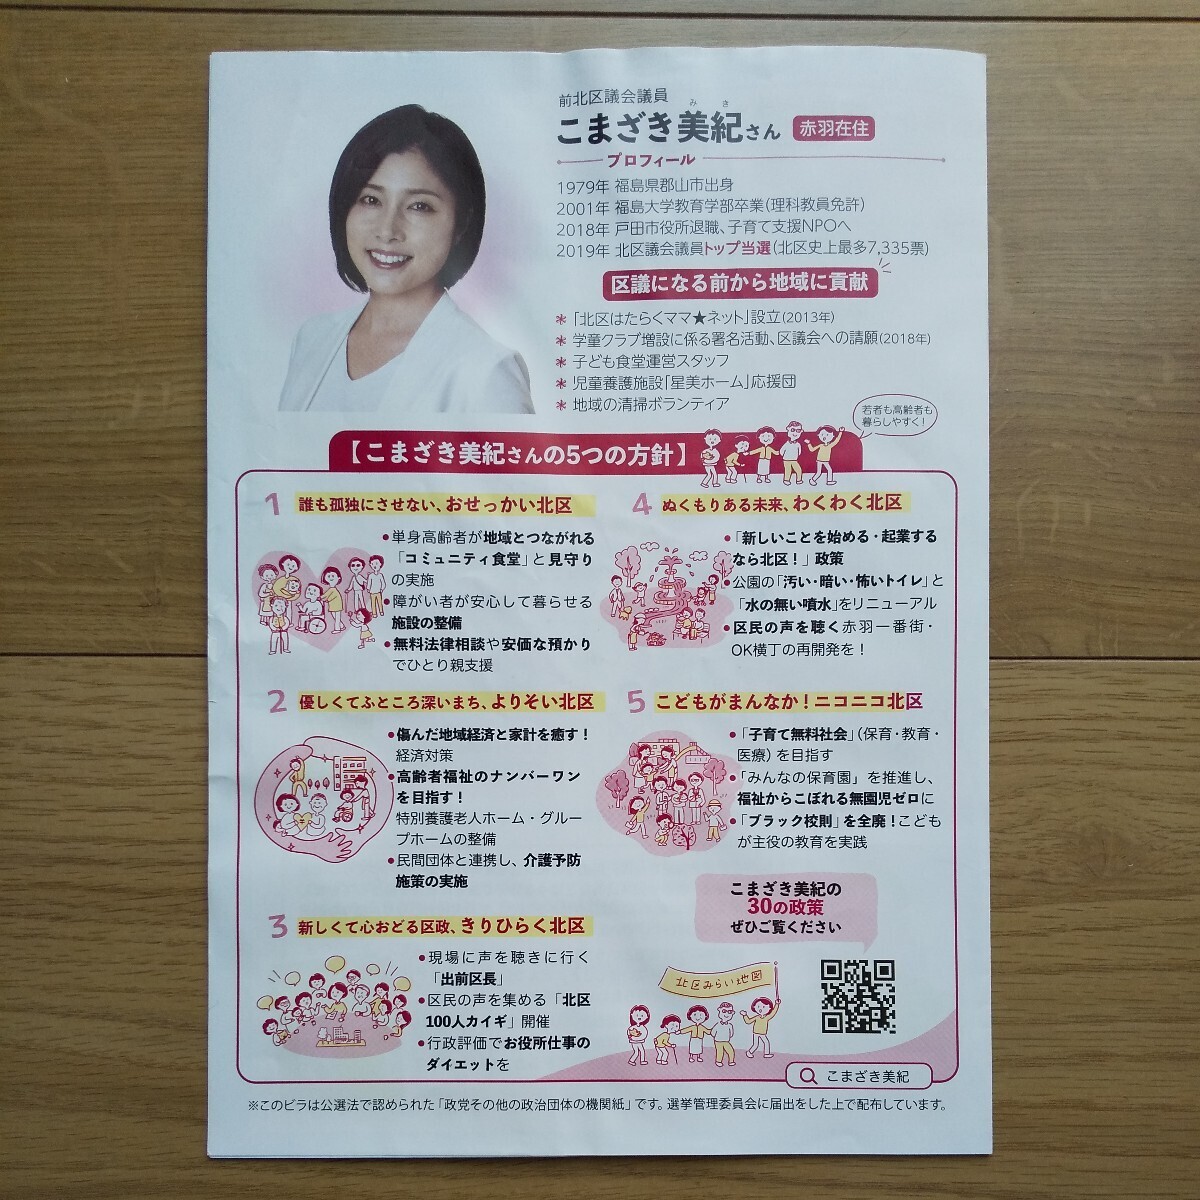 前北区議会議員
みき
こまざき美紀さん 赤羽在住
プロフィール
1979年 福島県郡山市出身
2001年 福島大学教育学部卒業(理科教員免許)
2018年 戸田市役所退職、子育て支援NPOへ
2019年 北区議会議員トップ当選(北区史上最多7,335票)
区議になる前から地域に貢献
＊「北区はたらくママ★ネット」設立(2013年)
＊学童クラブ増設に係る署名活動、区議会への請願(2018年)
＊子ども食堂運営スタッフ
＊児童養護施設「星美ホーム」応援団
＊地域の清掃ボランティア
若者も高齢者も
暮らしやすく!
【こまざき美紀さんの5つの方針】
1 誰も孤独にさせない、おせっかい北区
●単身高齢者が地域とつながれる
「コミュニティ食堂」と見守り
の実施
●障がい者が安心して暮らせる
施設の整備
●無料法律相談や安価な預かり
でひとり親支援
2 優しくてふところ深いまち、よりそい北区
●傷んだ地域経済と家計を癒す!
経済対策
●高齢者福祉のナンバーワン
を目指す!
特別養護老人ホーム・グルー
プホームの整備
●民間団体と連携し、介護予防
施策の実施
3 新しくて心おどる区政、きりひらく北区
●現場に声を聴きに行く
「出前区長」
●区民の声を集める「北区
100人カイギ」開催
●行政評価でお役所仕事の
ダイエットを
4 ぬくもりある未来、わくわく北区
●「新しいことを始める・起業する
なら北区!」政策
●公園の「汚い・暗い・怖いトイレ」と
「水の無い噴水」をリニューアル
●区民の声を聴く赤羽一番街・
OK横丁の再開発を!
5 こどもがまんなか!ニコニコ北区
●「子育て無料社会」(保育・教育・
医療)を目指す
●「みんなの保育園」を推進し、
福祉からこぼれる無園児ゼロに
●「ブラック校則」を全廃!こども
が主役の教育を実践
こまざき美紀の
30の政策
ぜひご覧ください
北区みらい地図
こまざき美紀
※このビラは公選法で認められた「政党その他の政治団体の機関紙」です。選挙管理委員会に届出をした上で配布しています。